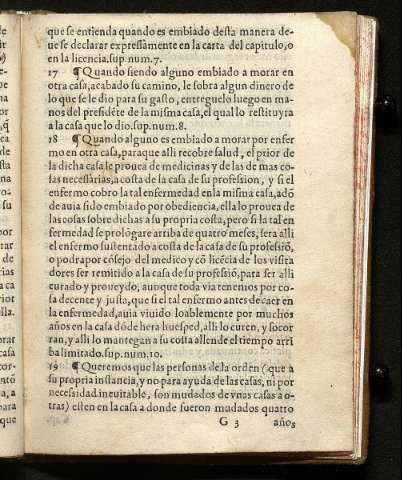 que se entienda quando es embiado desta manera de-
ue se declarar expressamente en la carta del capitulo, o
en la licencia. sup. num. 7.
17 ¶ Quando siendo alguno embiado a morar en
otra casa, acabado su camino, le sobra algun dinero de
lo que se le dio para su gasto, entreguelo luego en ma-
nos del presidẽte de la misma casa, el qual lo restituyra
a la casa que lo dio. sup. num. 8.
18 ¶ Quando alguno es embiado a morar por enfer
mo en otra casa, paraque alli recobre salud, el prior de
la dicha casa le prouea de medicinas y de las de mas co-
sas necessarias, a costa de la casa de su profession, y si el
enfermo cobro la tal enfermedad en la misma casa, adõ
de auia sido embiado por obediencia, ella lo prouea de
las cosas sobre dichas a su propria costa, pero si la tal en
fermedad se prolõgare arriba de quatro meses, sera alli
el enfermo sustentado a costa de la casa de su professiõ,
o podra por cõsejo del medico y cõ licẽcia de los visita
dores ser remitido a la casa de su professiõ, para ser alli
curado y proueydo, aunque toda via tenemos por co-
sa decente y justa, que si el tal enfermo antes de caer en
la enfermedad, auia viuido loablemente por muchos
años en la casa dõde hera huesped, alli lo curen, y socor
ran, y alli lo mantegan a su costa allende el tiempo arri
ba limitado. sup. num. 10.
19 ¶ Queremos que las personas de la orden (que a
su propria instancia, y no para ayuda de las casas, ni por
necesidad ineuitable, son mudados de vnas casas a o-
tras) esten en la casa a donde fueron mudados quatro
G 3 años